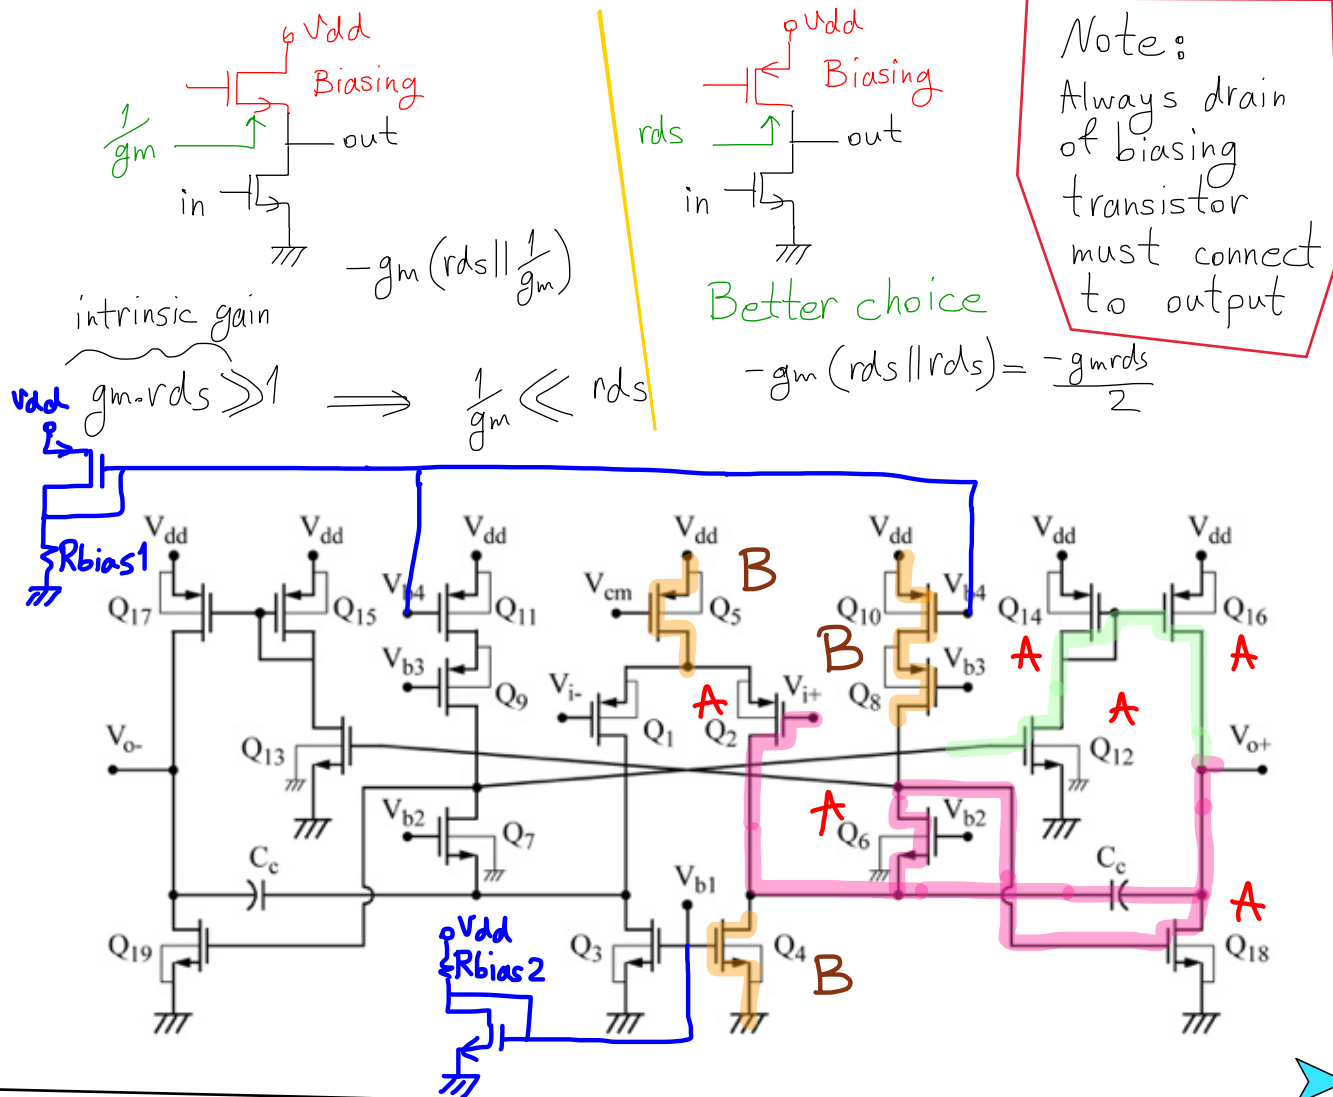 Vdd
Biasing
1/gm
out
in
-gm(rds||1/gm)
intrinsic gain
gm.rds ≫ 1 ⟹ 1/gm ≪ rds
Vdd
Biasing
rds
out
in
Better choice
-gm(rds||rds) = -gmrds/2
Note:
Always drain
of biasing
transistor
must connect
to output
Vdd
Rbias1
Vdd Vdd Vdd Vdd Vdd Vdd Vdd
B
Q17 Q15 Vb4 Q11 Vcm Q5 Q10 Vb4 Q14 Q16
B A A
Vb3 Q9 Vi- Q1 A Q2 Vi+ Q8 Vb3
A
Vo- Q13 Q12 Vo+
Vb2 Q7 A Q6 Vb2
Cc Vb1 Cc
A
Q19 Vdd Q3 Q4 Q18
Rbias2 B